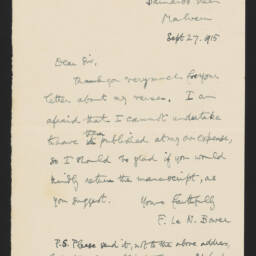 Malvern
Sept 27. 1915
Dear Sir,
Thank you very much for your
letter about my verses. I am
afraid that I cannot undertake
to have them published at my own expense,
so I should be glad if you would
kindly return the manuscript, as
you suggest.
Yours faithfully
F. Le N. Bower
P.S. Please send it, not to the above address,